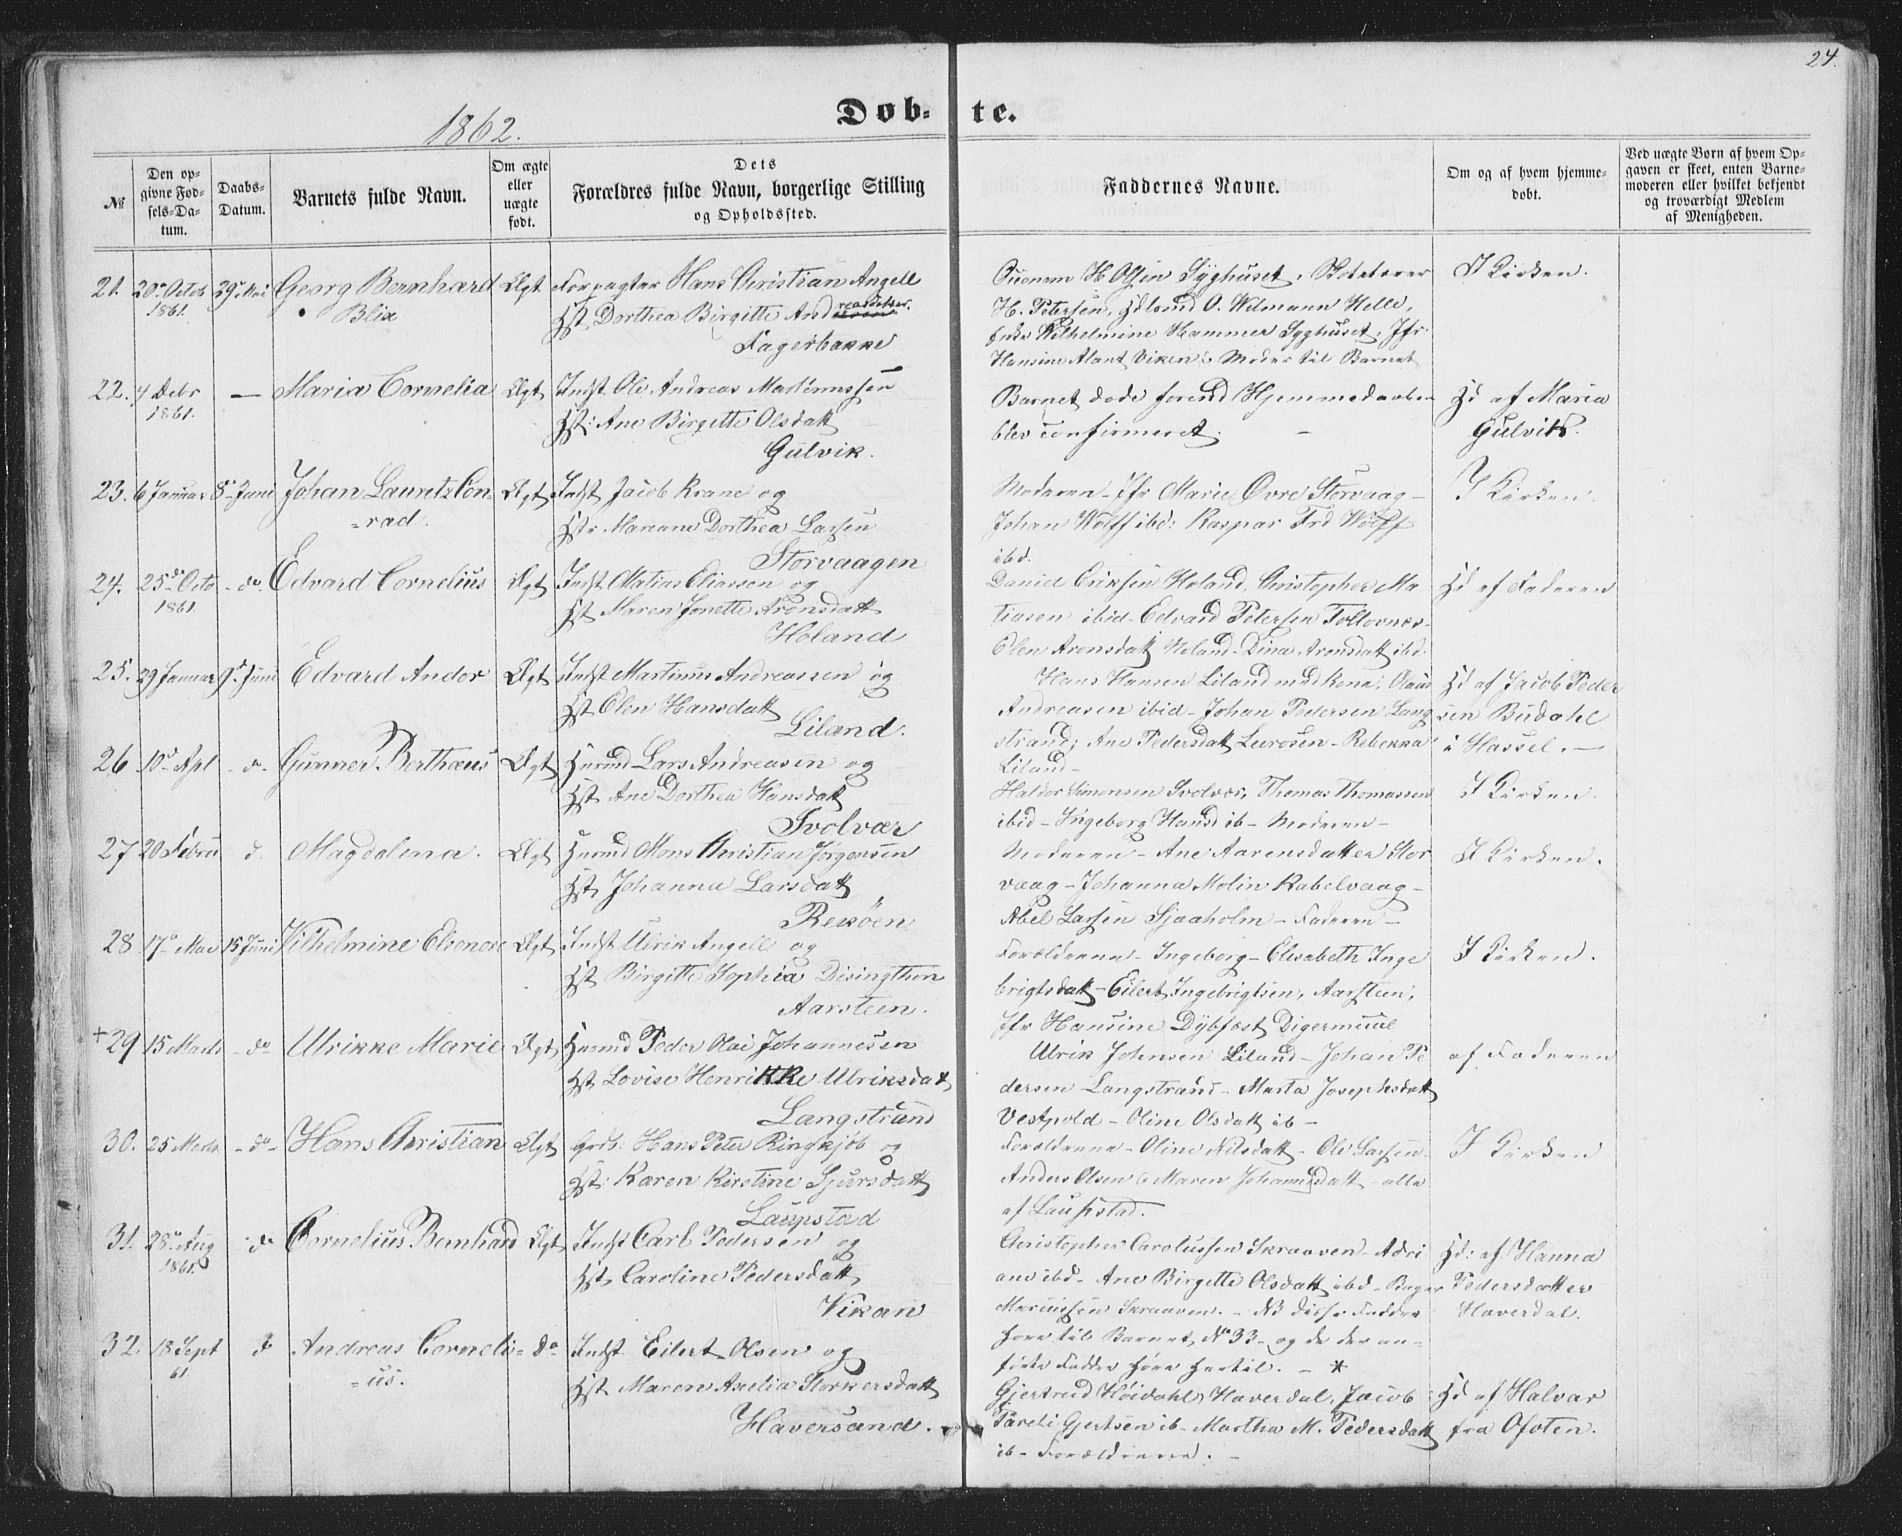 24.
1862.
Døb- te.
№
Den op-
givne Fød-
sels-Da-
tum.
Daabs-
Datum.
Barnets fulde Navn.
Om ægte
eller
uægte
født.
Dets
Forældres fulde Navn, borgerlige Stilling
og Opholdssted.
Faddernes Navne.
Om og af hvem hjemme-
døbt.
Ved uægte Børn af hvem Op-
gaven er skeet, enten Barne-
moderen eller hvilket bekjendt
og troværdigt Medlem
af Menigheden.
21. 20de Octob 29de Mai Georg Bernhard Ægt. Forpagter Hans Christian Angell
1861. Blix Hst Dorthea Birgitte
Fagerbakke
H. Olsen Syghuset,
H. Petersen, O. Wilmann Helle,
Wilhelmine Hammer Syghuset, Jfr:
Hansine Viken & Moder til Barnet
I Kirken.
22. 4 Debr — Maria Cornelia Ægt Indst Ole Andreas Martinussen
1861. Hst: Ane Birgitte Olsdatt
Gulvik.
Barnet døde forend Hjemmedaaben
blev confirmeret. —
Hd af Maria
Gulvik.
23. 6 Januar 8de Juni Johan Lauritz Con Ægt Indst Jacob Krane og
=rad. Hstr Mariane Dorthea Larsen
Storvaagen
Moderen - Jfr Marie Øvre Storvaag -
Johan Wolff ibd: Kaspar Frd Wolff
ibd.
I Kirken.
24. 25de Octo - do. Edvard Cornelius Ægt Indst Matias Eliassen og
1861. Hst Maren Jonette Aronsdatt
Holand
Daniel Eriksen Holand, Christopher Ma
tiasen ibid - Edvard Petersen
Elen Aronsdatt Holand - Dina Aronsdatt ibd.
Hd af Faderen
25. 29 Januar 9de Juni Edvard Andor Ægt Indst Martinus Andreassen og
Hst Elen Hansdatt
Liland.
Hans Hansen Liland med Kone, Olaus
Andreasen ibid - Johan Pedersen Lang
strand; Ane Pedersdatt - Rebekka
Liland -
Hd af Jacob Peder
sen Budahl
i Hassel. —
26 10de Apl - do - Gunner Berthæus Ægt Husmd Lars Andreasen og
Hst Ane Dorthea Hansdatt
Svolvær
Haldor Simonsen Svolvær, Thomas Thomassen
ibid - Ingeborg Hansd ib - Moderen -
I Kirken.
27 20 Febru d. Magdalena. Ægt Husmd Mons Christian Jørgensen
Hst Johanna Larsdatt
Rekøen
Moderen - Ane Aarensdatter Stor
vaag - Johanna Molin Kabelvaag -
Abel Larsen Sjaaholm - Faderen -
I Kirken.
28 17de Mai 15 Juni Vilhelmine Eleonore Ægt Indst Ulrik Angell og
Hst Birgitte Sophia Disingthon
Aarsteen.
Forældrene - Ingeborg - Elisabeth Inge
brigtsdatt - Eilert Ingebrigtsen, Aarsteen,
Jfr Hansine Dybfest Digermuul
I Kirken.
+29 15 Marts - do Ulrikke Marie Ægt Husmd Peder Olai Johannessen
Hst Lovise Henrikke Ulriksdat
Langstrand
Ulrik Johnsen Liland - Johan Pe
dersen Langstrand - Marta Josephsdatt
Vestpold - Oline Olsdatt ib -
af Faderen
30. 25 Marts - do - Hans Christian Ægt Grdb: Hans Peter Ringkjøb og
Hst: Karen Kirstine Sjursdatt
Laupstad
Forældrene - Oline Nilsdatt - Ole Larsen -
Anders Olsen & Maren Johannesdatt - alle
af Laupstad.
I Kirken
31. 28de Aug do Cornelius Bernhard Ægt Indst Carl Pedersen og
1861. Hst Caroline Pedersdatt
Vikan
Christopher Carolussen Skraaven - Adri
ane ibd - Ane Birgitte Olsdatt ibd -
Skraaven. - NB disse Faddre
høre til Barnet No 33 - og de der an-
førte Faddre høre hertil. - *
Hd: af Hanna
Pedersdatter
Haverdal.
32. 18 Sept do Andreas Corneli= do Indst Eilert Olsen og
61 =us. Hst Maren Amelia Storkersdatt
Haversand.
Gjertrud Høidahl Haverdal, Jacob
Pareli Gjertsen ib - Martha M. Pedersdatt
ib - Forældrene. -
Hd af Halvar
fra Ofoten.